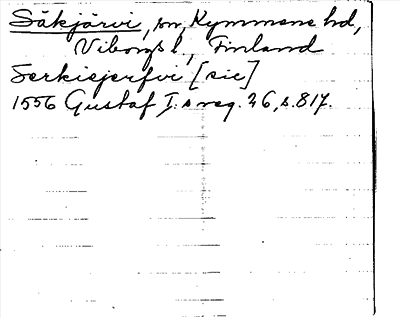 Säkjärvi, sn, Kymmene hd,
Viborgs l., Finland
Serkisjerfvi [sic]
1556 Gustaf I:s reg. 26, s. 817.